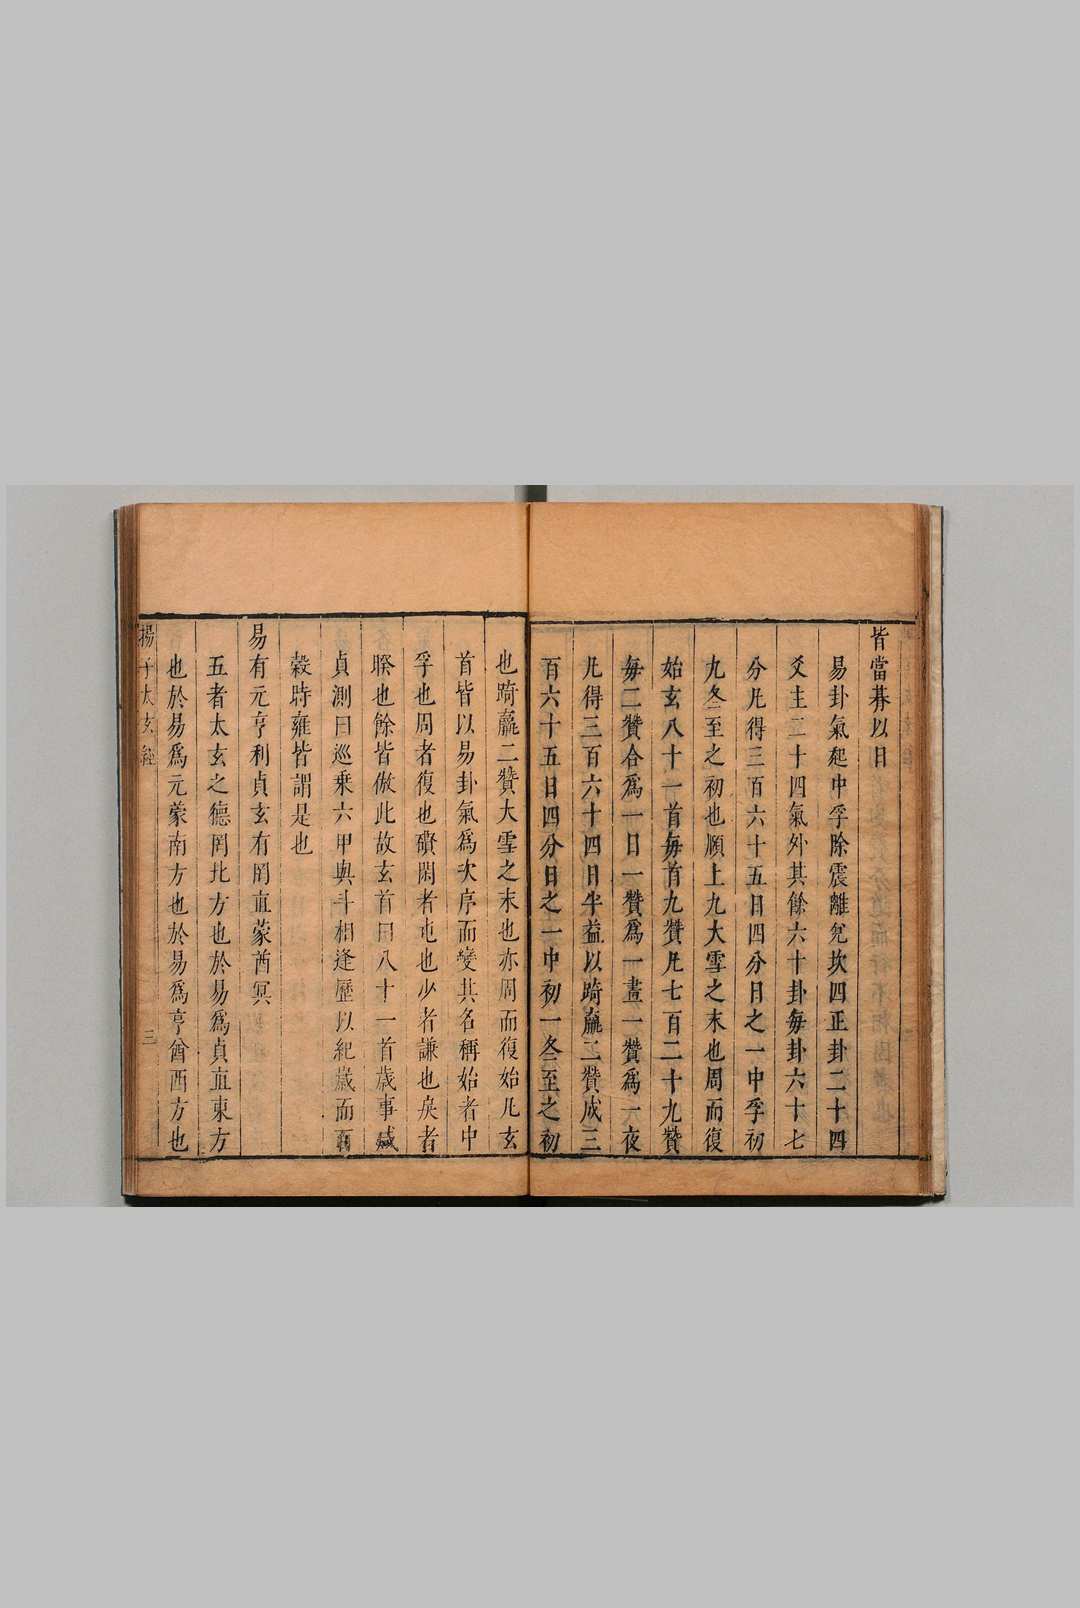 皆當朞以日
易卦氣起中孚除震離兌坎四正卦二十四
爻主二十四氣外其餘六十卦每卦六日七
分凡得三百六十五日四分日之一中孚初
九冬至之初也頤上九大雪之末也周而復
始玄八十一首每首九贊凡七百二十九贊
每二贊合爲一日一贊爲一晝一贊爲一夜
凡得三百六十四日半益以踦䕻二贊成三
百六十五日四分日之一中初一冬至之初
也踦䕻二贊大雪之末也亦周而復始凡玄
首皆以易卦氣爲次序而變其名稱始者中
孚也周者復也礥閑者屯也少者謙也戾者
睽也餘皆倣此故玄首曰八十一首歲事咸
貞測曰巡乘六甲與斗相逢歷以紀歲而百
穀時雍皆謂是也
易有元亨利貞玄有罔直蒙酋冥
五者太玄之德罔北方也於易爲貞直東方
也於易爲元蒙南方也於易爲亨酋西方也
揚子太玄經
三